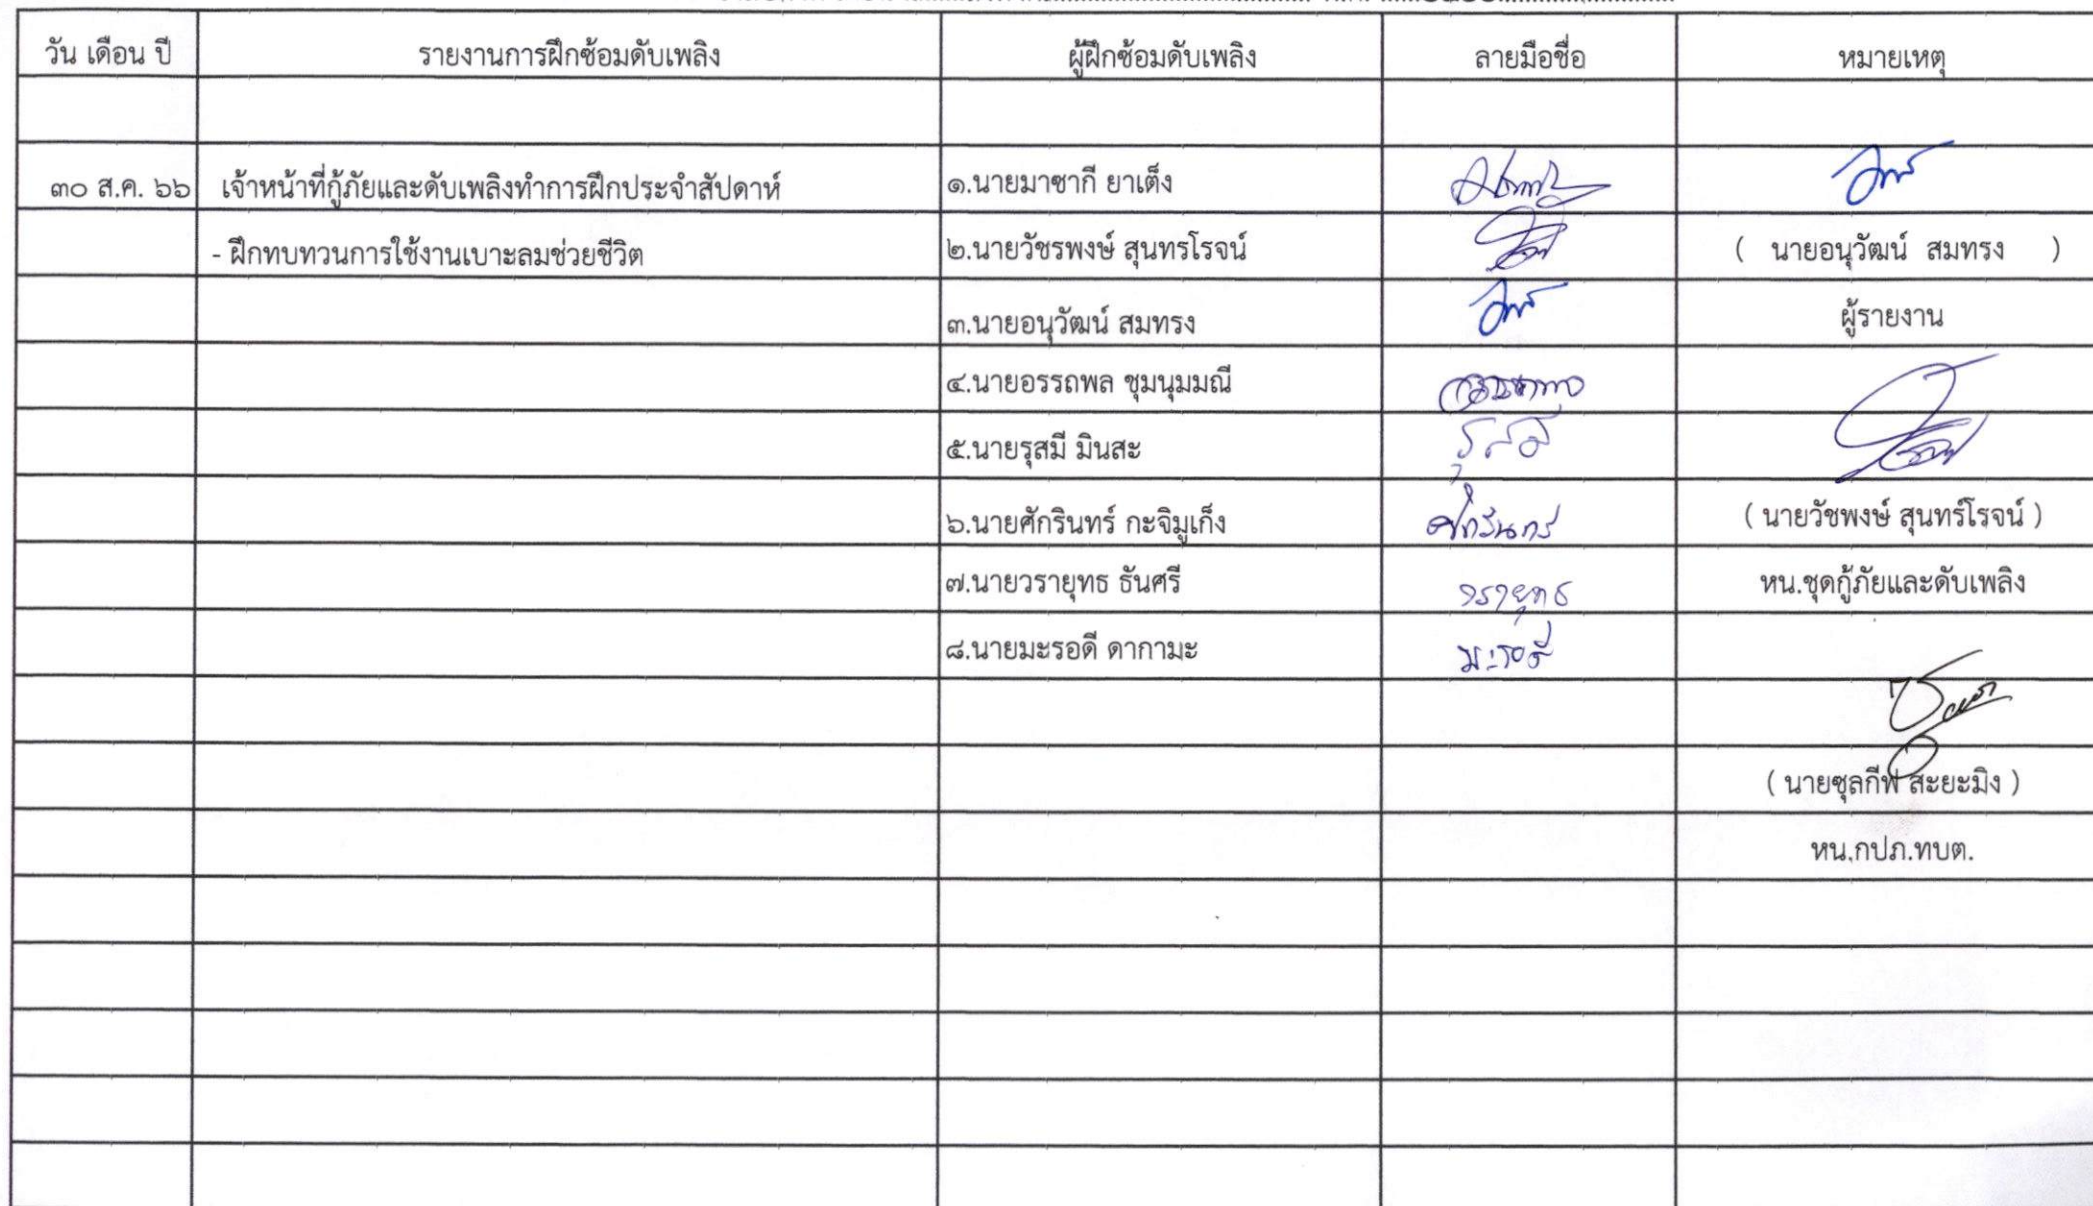 วัน เดือน ปี รายงานการฝึกซ้อมดับเพลิง ผู้ฝึกซ้อมดับเพลิง ลายมือชื่อ หมายเหตุ
๓๐ ส.ค. ๖๖ เจ้าหน้าที่กู้ภัยและดับเพลิงทำการฝึกประจำสัปดาห์ ๑.นายมาซากี ยาเต็ง
- ฝึกทบทวนการใช้งานเบาะลมช่วยชีวิต ๒.นายวัชรพงษ์ สุนทรโรจน์ ( นายอนุวัฒน์ สมทรง )
๓.นายอนุวัฒน์ สมทรง ผู้รายงาน
๔.นายอรรถพล ชุมนุมมณี
๕.นายรุสมี มินสะ รุสมี
๖.นายศักรินทร์ กะจิมูเก็ง ศักรินทร์ ( นายวัชพงษ์ สุนทร์โรจน์ )
๗.นายวรายุทธ ธันศรี วรายุทธ หน.ชุดกู้ภัยและดับเพลิง
๘.นายมะรอดี ดากามะ มะรอดี
( นายซุลกีฟ สะยะมิง )
หน.กปภ.ทบต.